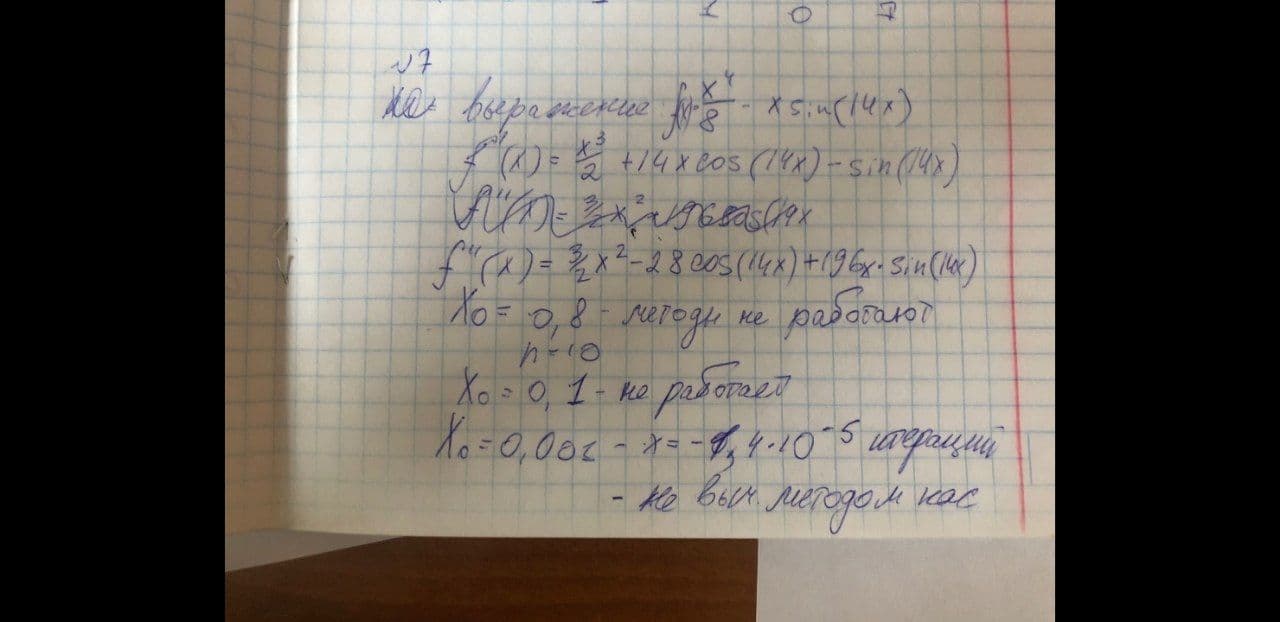 1 0 7
№7
выражение f(x)= x⁴/8 - x sin(14x)
f'(x) = x³/2 + 14x cos(14x) - sin(14x)
f''(x) = 3/2 x² - 196 cos(14x
f''(x) = 3/2 x² - 28 cos(14x) + 196x · sin(14x)
X₀ = 0,8 - методы не работают
n = 10
X₀ = 0,1 - не работает
X₀ = 0,001 - x = -1,4·10⁻⁵ итераций
- не выч. методом кас